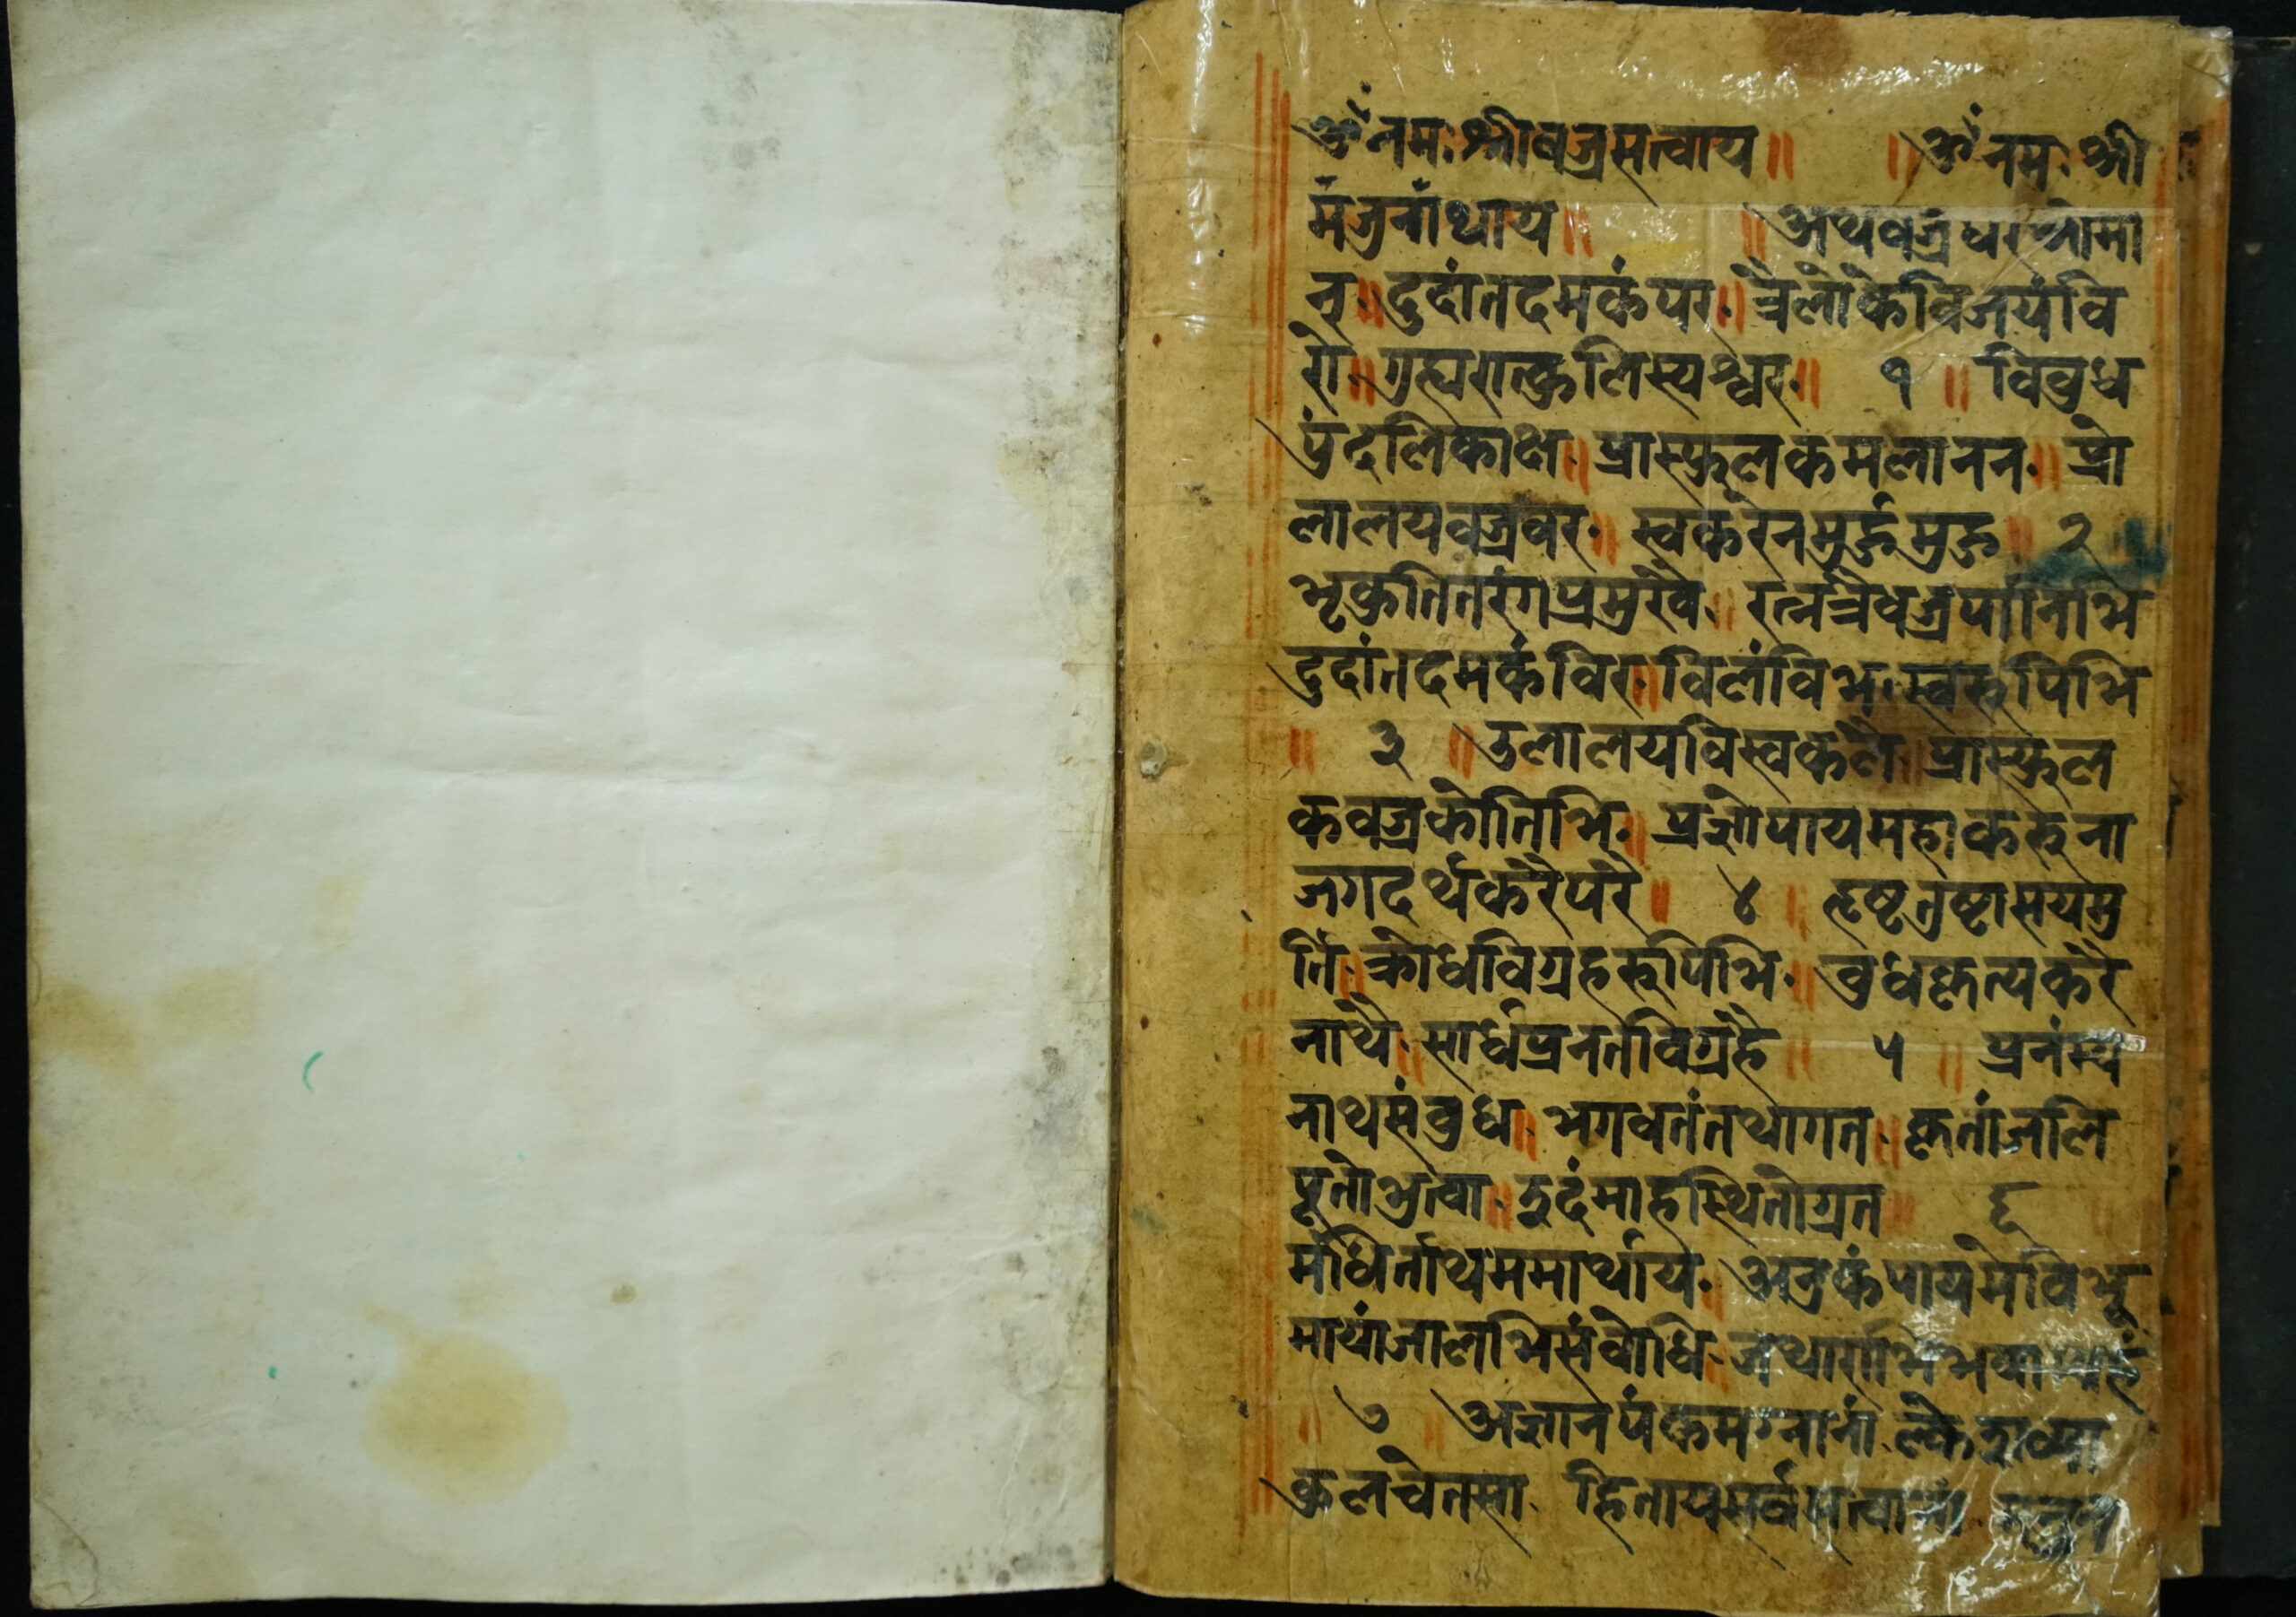 ॐ नमः श्रीवज्रसत्वाय ॥ ॥ ॐ नमः श्री
मंजुनाथाय ॥ ॥ अथवज्रंधरश्रीमा
न् ॥ दुदांतदमकंपरः ॥ त्रैलोकेविजयंवि
रो ॥ गुह्यरात्कुलिस्यश्वरः ॥ १ ॥ विवुध
पुंदलिकाक्षः ॥ प्रास्फुलकमलाननः ॥ प्रो
लालयवज्रवरः ॥ स्वकरेनमुर्द्धमुद्ध ॥ २
भृकुतितरंगप्रमुखैः ॥ रत्नत्रैवज्रपानिभि
दुदांतदमकंविरः ॥ विलंविभः स्वरूपिभि
॥ ३ ॥ उलालयविस्वकलै ॥ प्रास्फुल
कवज्रकोतिभिः ॥ प्रज्ञोपायमहाकरूना
जगदर्थकरैपरै ॥ ४ ॥ हृष्टतुष्टासयमु
र्ति ॥ क्रोधविग्रहरूपिभिः ॥ वुधकृत्यकरै
नाथै ॥ सार्धप्रनतविग्रहै ॥ ५ ॥ प्रनंम्य
नाथसंवुधः ॥ भगवतंतथागतः ॥ कृतांजलि
पूतोभुत्वा ॥ इदंमाहस्थितोग्रत ॥ ६
मंधितांथममार्थायः ॥ अनुकंपायमेविभू
मायांजालभिसंवोधिः जथाराभिभवाम्यहं
॥ ७ ॥ अज्ञानपंकमग्नानां क्लेसव्या
कुलचेतसा. हितायसर्वसत्वानां